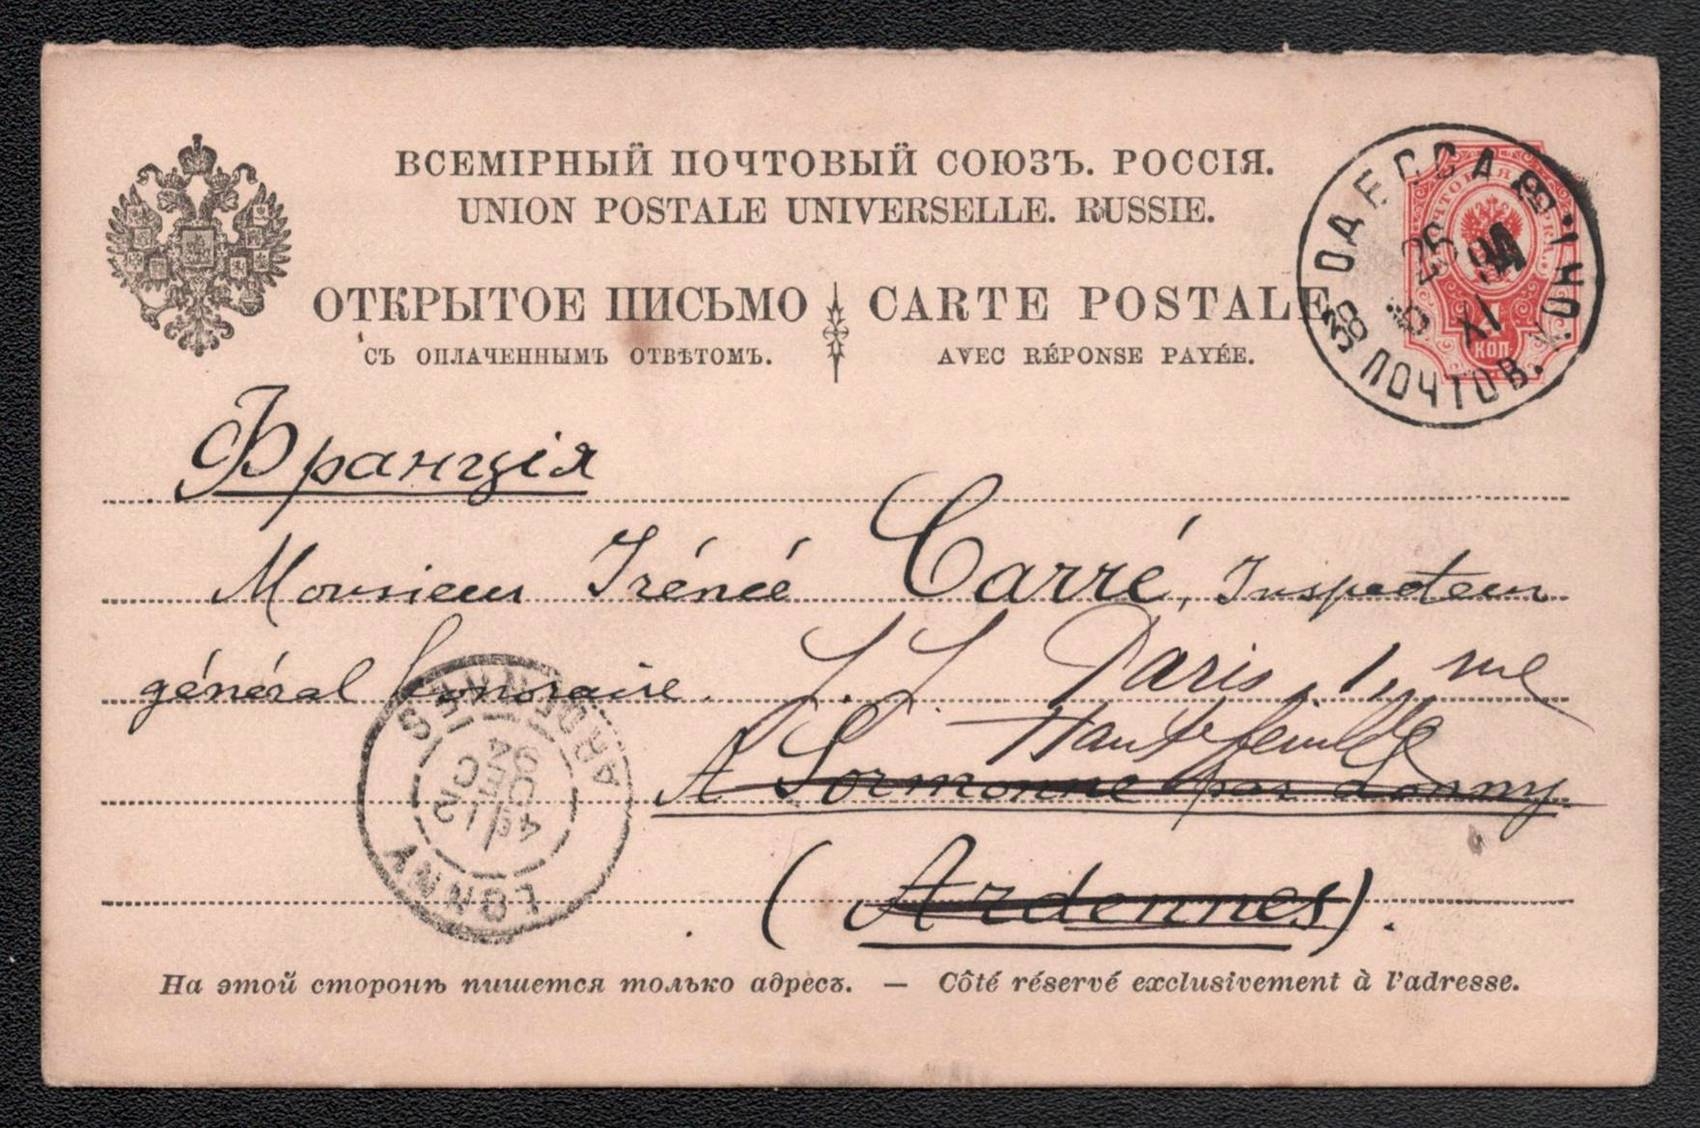 ВСЕМІРНЫЙ ПОЧТОВЫЙ СОЮЗЪ. РОССІЯ.
UNION POSTALE UNIVERSELLE. RUSSIE.
ОТКРЫТОЕ ПИСЬМО CARTE POSTALE
СЪ ОПЛАЧЕННЫМЪ ОТВѢТОМЪ. AVEC RÉPONSE PAYÉE.
ОДЕССА
26 XI
ПОЧТОВ.
КОП.
Франція
Monsieur Irénée Carré, Inspecteur
général honoraire.
Paris, 1, rue
Hautefeuille
A Sormonne par Lonny
(Ardennes).
LONNY
ARDENNES
12
DEC
94
На этой сторонѣ пишется только адресъ. — Côté réservé exclusivement à l'adresse.